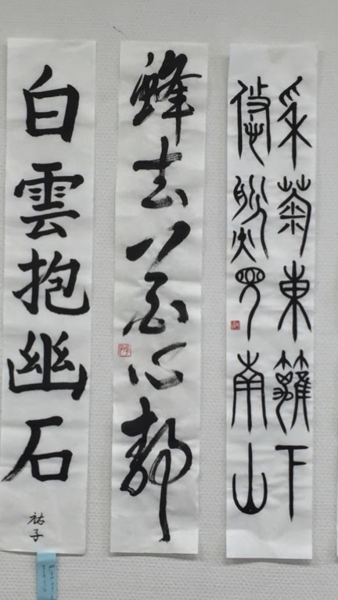 采菊東籬下
悠然見南山
蜂去花心静
白雲抱幽石
祐子